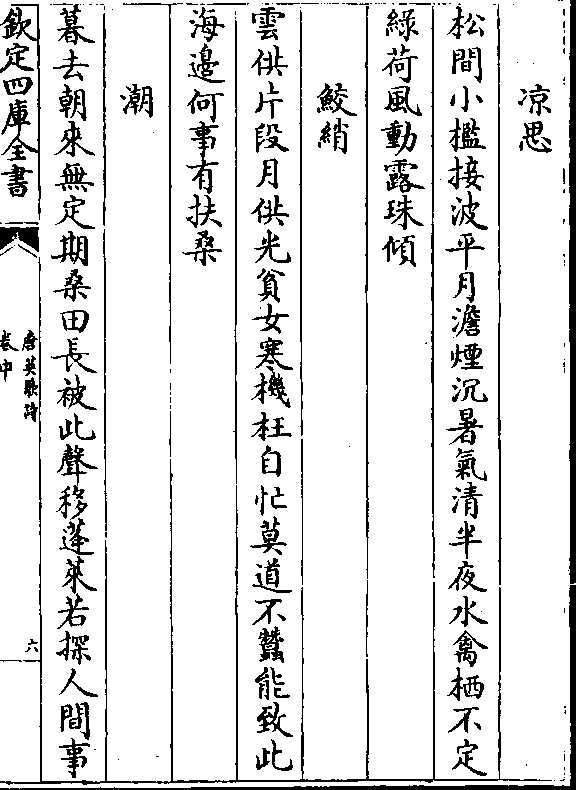 凉思
松間小檻接波平月澹煙沉暑氣清半夜水禽栖不定
綠荷風動露珠傾
鮫綃
雲供片段月供光貧女寒機枉自忙莫道不蠶能致此
海邊何事有扶桑
潮
暮去朝來無定期桑田長被此聲移蓬萊若探人間事
欽定四庫全書
唐英歌詩
卷中
六